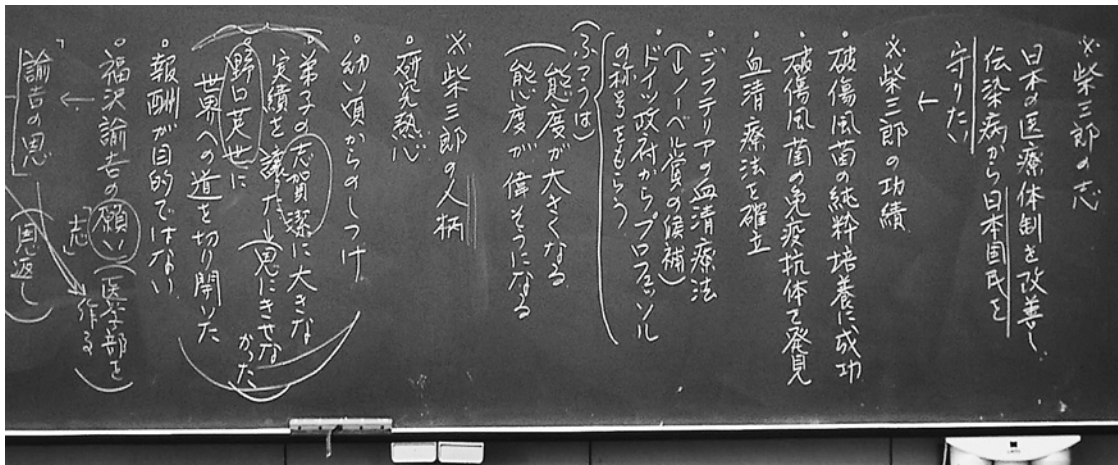 ※柴三郎の志
日本の医療体制を改善し、
伝染病から日本国民を
守りたい
↓
※柴三郎の功績
・破傷風菌の純粋培養に成功
・破傷風菌の免疫抗体を発見
・血清療法を確立
・ジフテリアの血清療法
(→ノーベル賞の候補)
・ドイツ政府からプロフェッソル
の称号をもらう
(ふつうは)
態度が大きくなる
態度が偉そうになる
※柴三郎の人柄
・研究熱心
・幼い頃からのしつけ
・弟子の志賀潔に大きな
実績を譲った→恩にきせな
かった
・野口英世に
世界への道を切り開いた
・報酬が目的ではない
・福沢諭吉の願い(医学部を
作る)
「志」
↓
「諭吉の恩」
恩返し